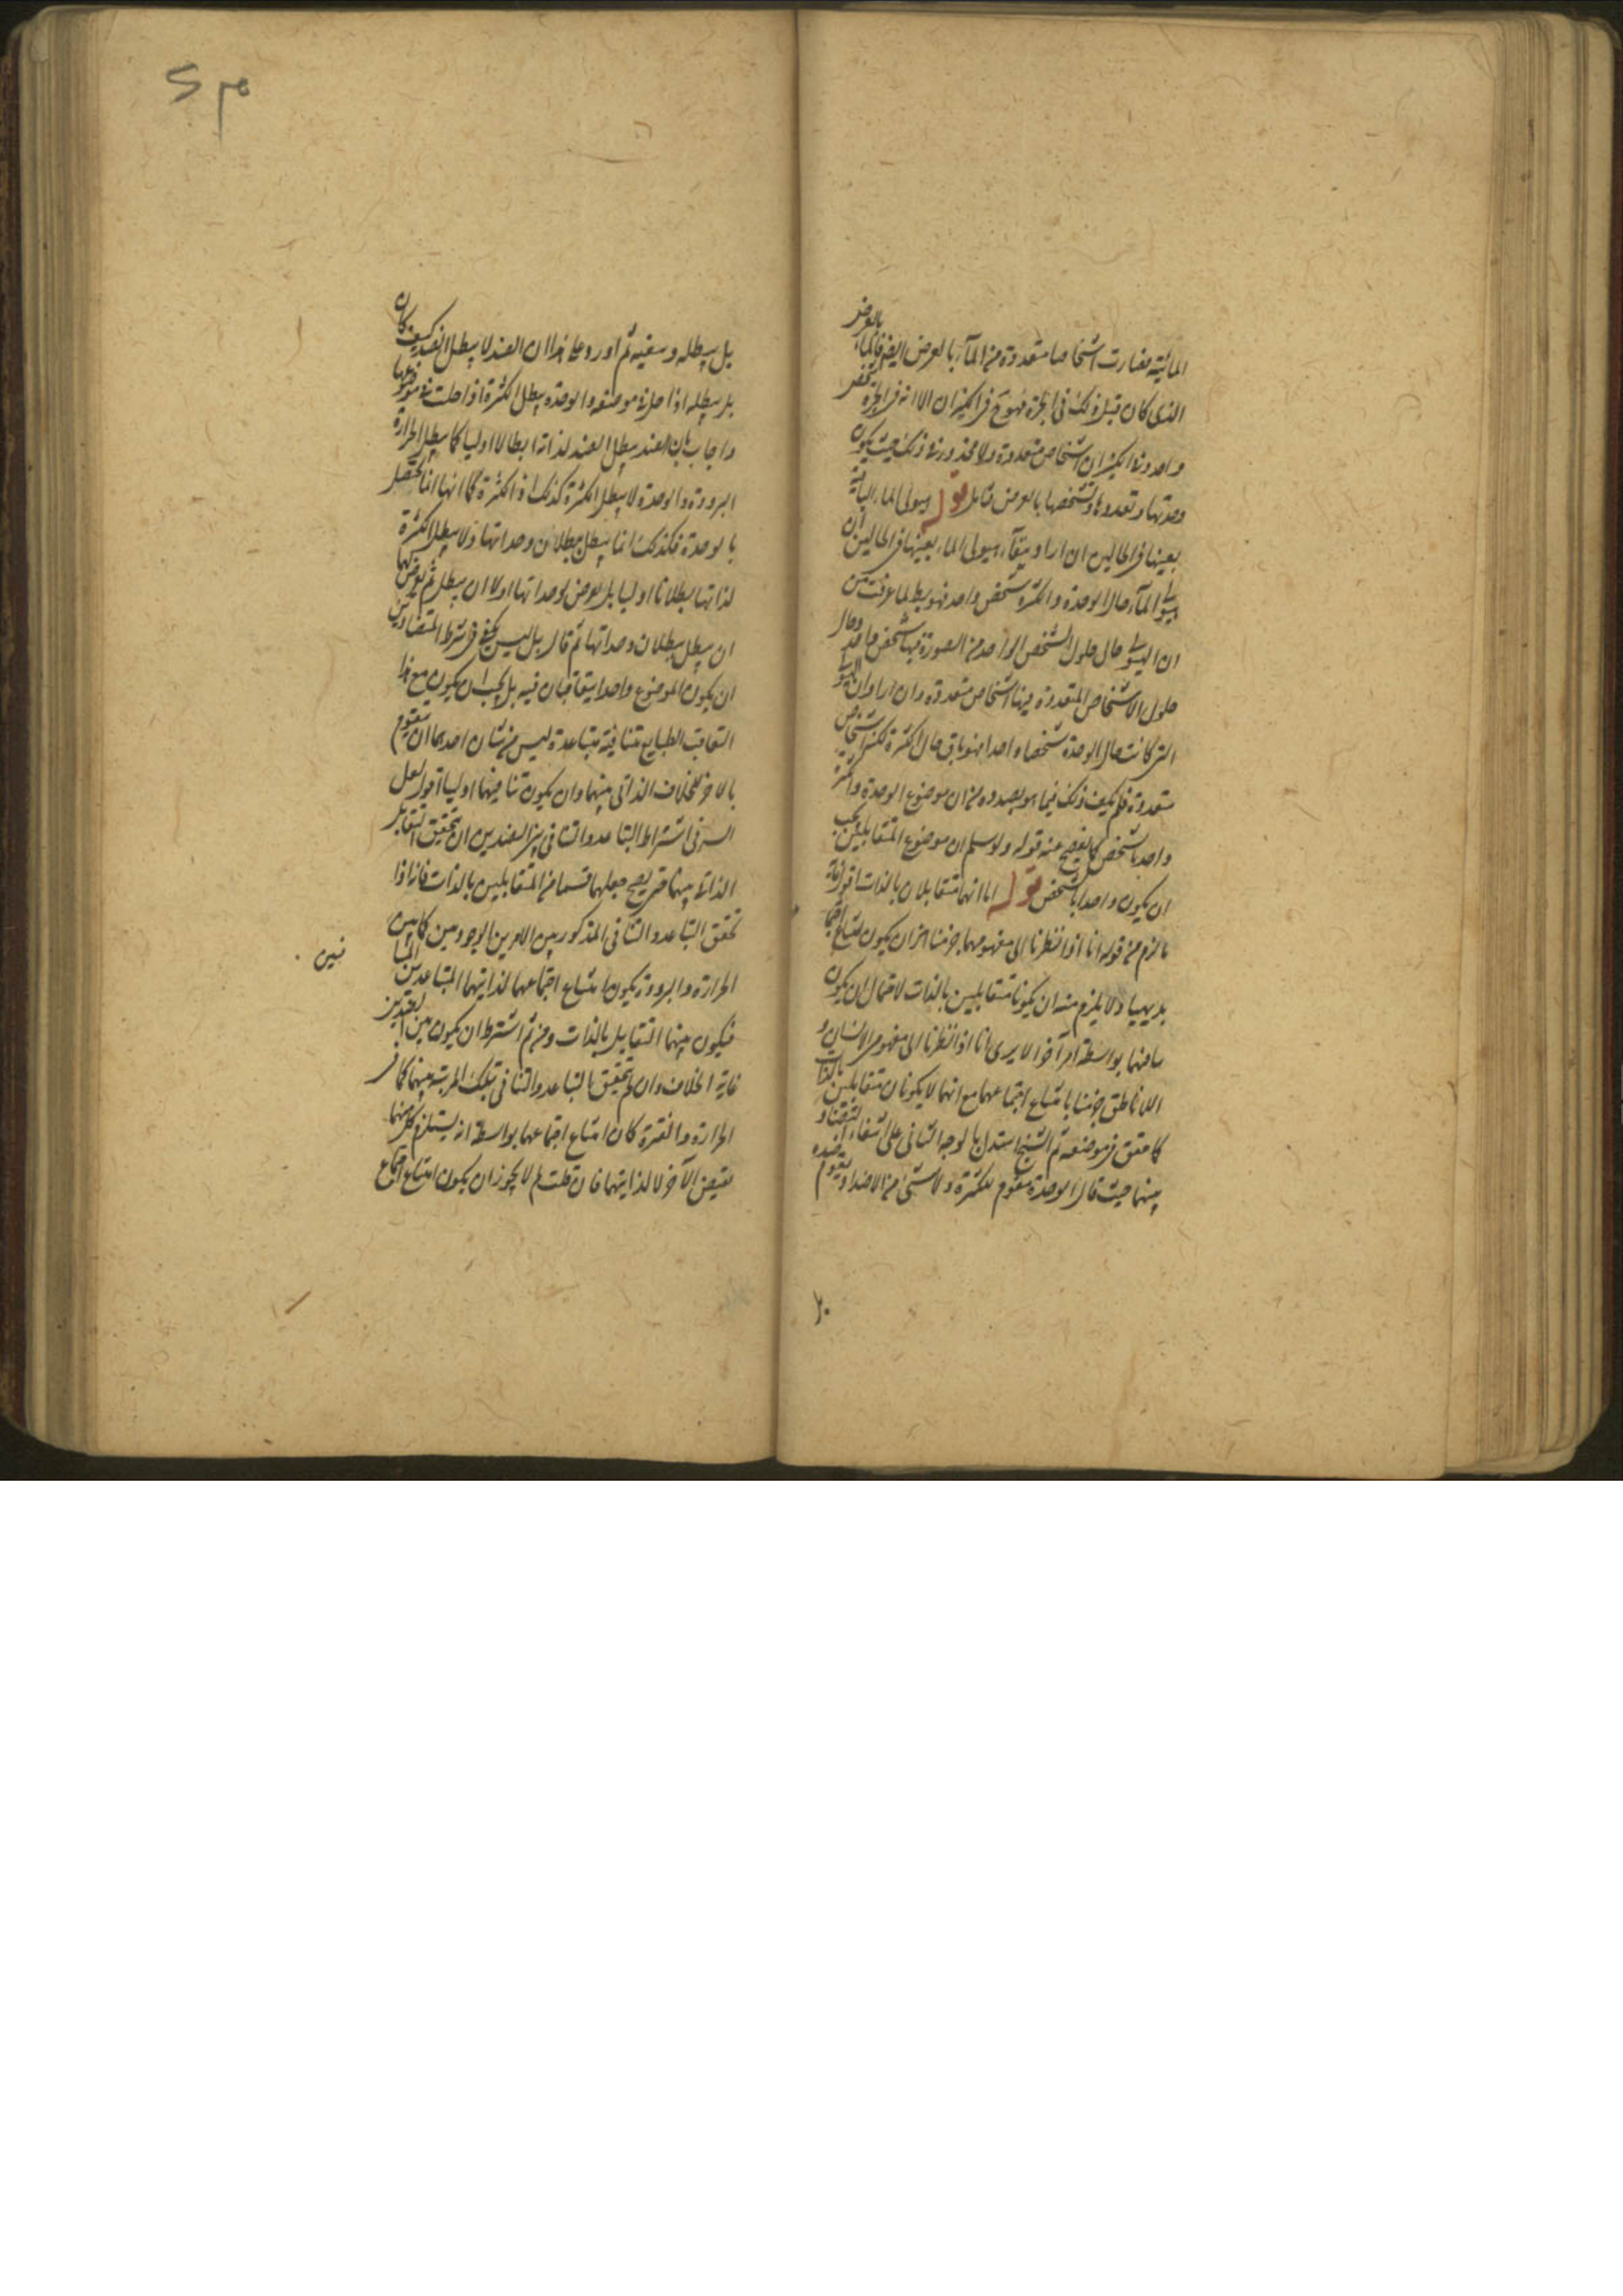 المائية فصارت اشخاصا متعددة من الماء بالعرض ايضا فالماء بالعرض
الذى كان قبل ذلك فى الجرة فهو فى الكيزان الا انه فى الجرة شخص
واحد وفى الكيزان اشخاص متعددة ولا محذور فى ذلك حيث يكون
وحدتها وتعددها وتشخصها بالعرض تأمل قوله هيولى الماء الباقية
بعينها فى الحالين ان اراد ببقاء هيولى الماء بعينها فى الحالين ان
هيولى الماء حال الوحدة والكثرة شخص واحد فهو بط لما عرفت من
ان الهيولى حال حلول الشخص الواحد من الصورة فيها شخص واحد وحال
حلول الاشخاص المتعددة فيها اشخاص متعددة وان اراد ان الهيولى
التى كانت حال الوحدة شخصا واحدا فهو باق حال الكثرة لكن اشخاص
متعددة فلم يكف ذلك فيما هو بصدده من ان موضوع الوحدة والكثرة
واحد بالشخص كما يفصح عنه قوله ولو سلم ان موضوع المتقابلين يجب
ان يكون واحدا بالشخص قوله اما انهما متقابلان بالذات اقول غاية
ما لزم من قوله انا اذا نظرنا الى مفهومهما جزمنا ان يكون امتناع اجتماعهما
بديهيا ولا يلزم منه ان يكونا متقابلين بالذات لاحتمال ان يكون
منافيهما بواسطة امر آخر الا يرى انا اذا نظرنا الى مفهوم الانسان و
اللاناطق جزمنا بامتناع اجتماعهما مع انهما لا يكونان متقابلين بالذات
كما حقق فى موضعه ثم الشيخ استدل بالوجه الثانى على انتفاء التضاد
بينهما حيث قال الوحدة مقوم للكثرة ولا شئ من الاضداد يقوم ضده
بل يبطله وينفيه ثم اورد على هذا ان الضد لا يبطل الضد كيف كان
بل يبطله اذا حل فى موضعه والوحدة يبطل الكثرة اذا حلت فى موضوعها
واجاب بان الضد يبطل الضد لذاته ابطالا اوليا كما يبطل الحرارة
البرودة والوحدة لا يبطل الكثرة كذلك اذ الكثرة كما انها انما تحصل
بالوحدة فكذلك انما يبطل ببطلان وحداتها ولا يبطل الكثرة
لذاتها بطلانا اوليا بل يعرض لوحداتها اولا ان يبطل ثم يعرض لها
ان يبطل ببطلان وحداتها ثم قال بل ليس يكفى فى شرط المتضادين
ان يكون الموضوع واحدا يتعاقبان فيه بل يجب ان يكون مع هذا
التعاقب الطبايع متنافية متباعدة ليس من شان احدهما ان يتقوم
بالاخر للخلاف الذاتى بينهما وان يكون تنافيهما اوليا اقول لعل
السر فى اشتراط التباعد والتنافى بين الضدين ان يتحقق التقابل
الذاتى بينهما حتى يصح جعلهما قسما من المتقابلين بالذات فانه اذا
تحقق التباعد والتنافى المذكورين بين الامرين الوجودين كما بين
الحرارة والبرودة يكون امتناع اجتماعهما لذاتيهما المتباعدين
فيكون بينهما التقابل بالذات ومن ثم اشترط ان يكون بين الضدين
غاية الخلاف وان لم يتحقق التباعد والتنافى بتلك المرتبة بينهما كما فى
الحرارة والفترة كان امتناع اجتماعهما بواسطة انه يستلزم كل منهما
نقيض الآخر لا لذاتيهما فان قلت لم لا يجوز ان يكون امتناع اجتماع